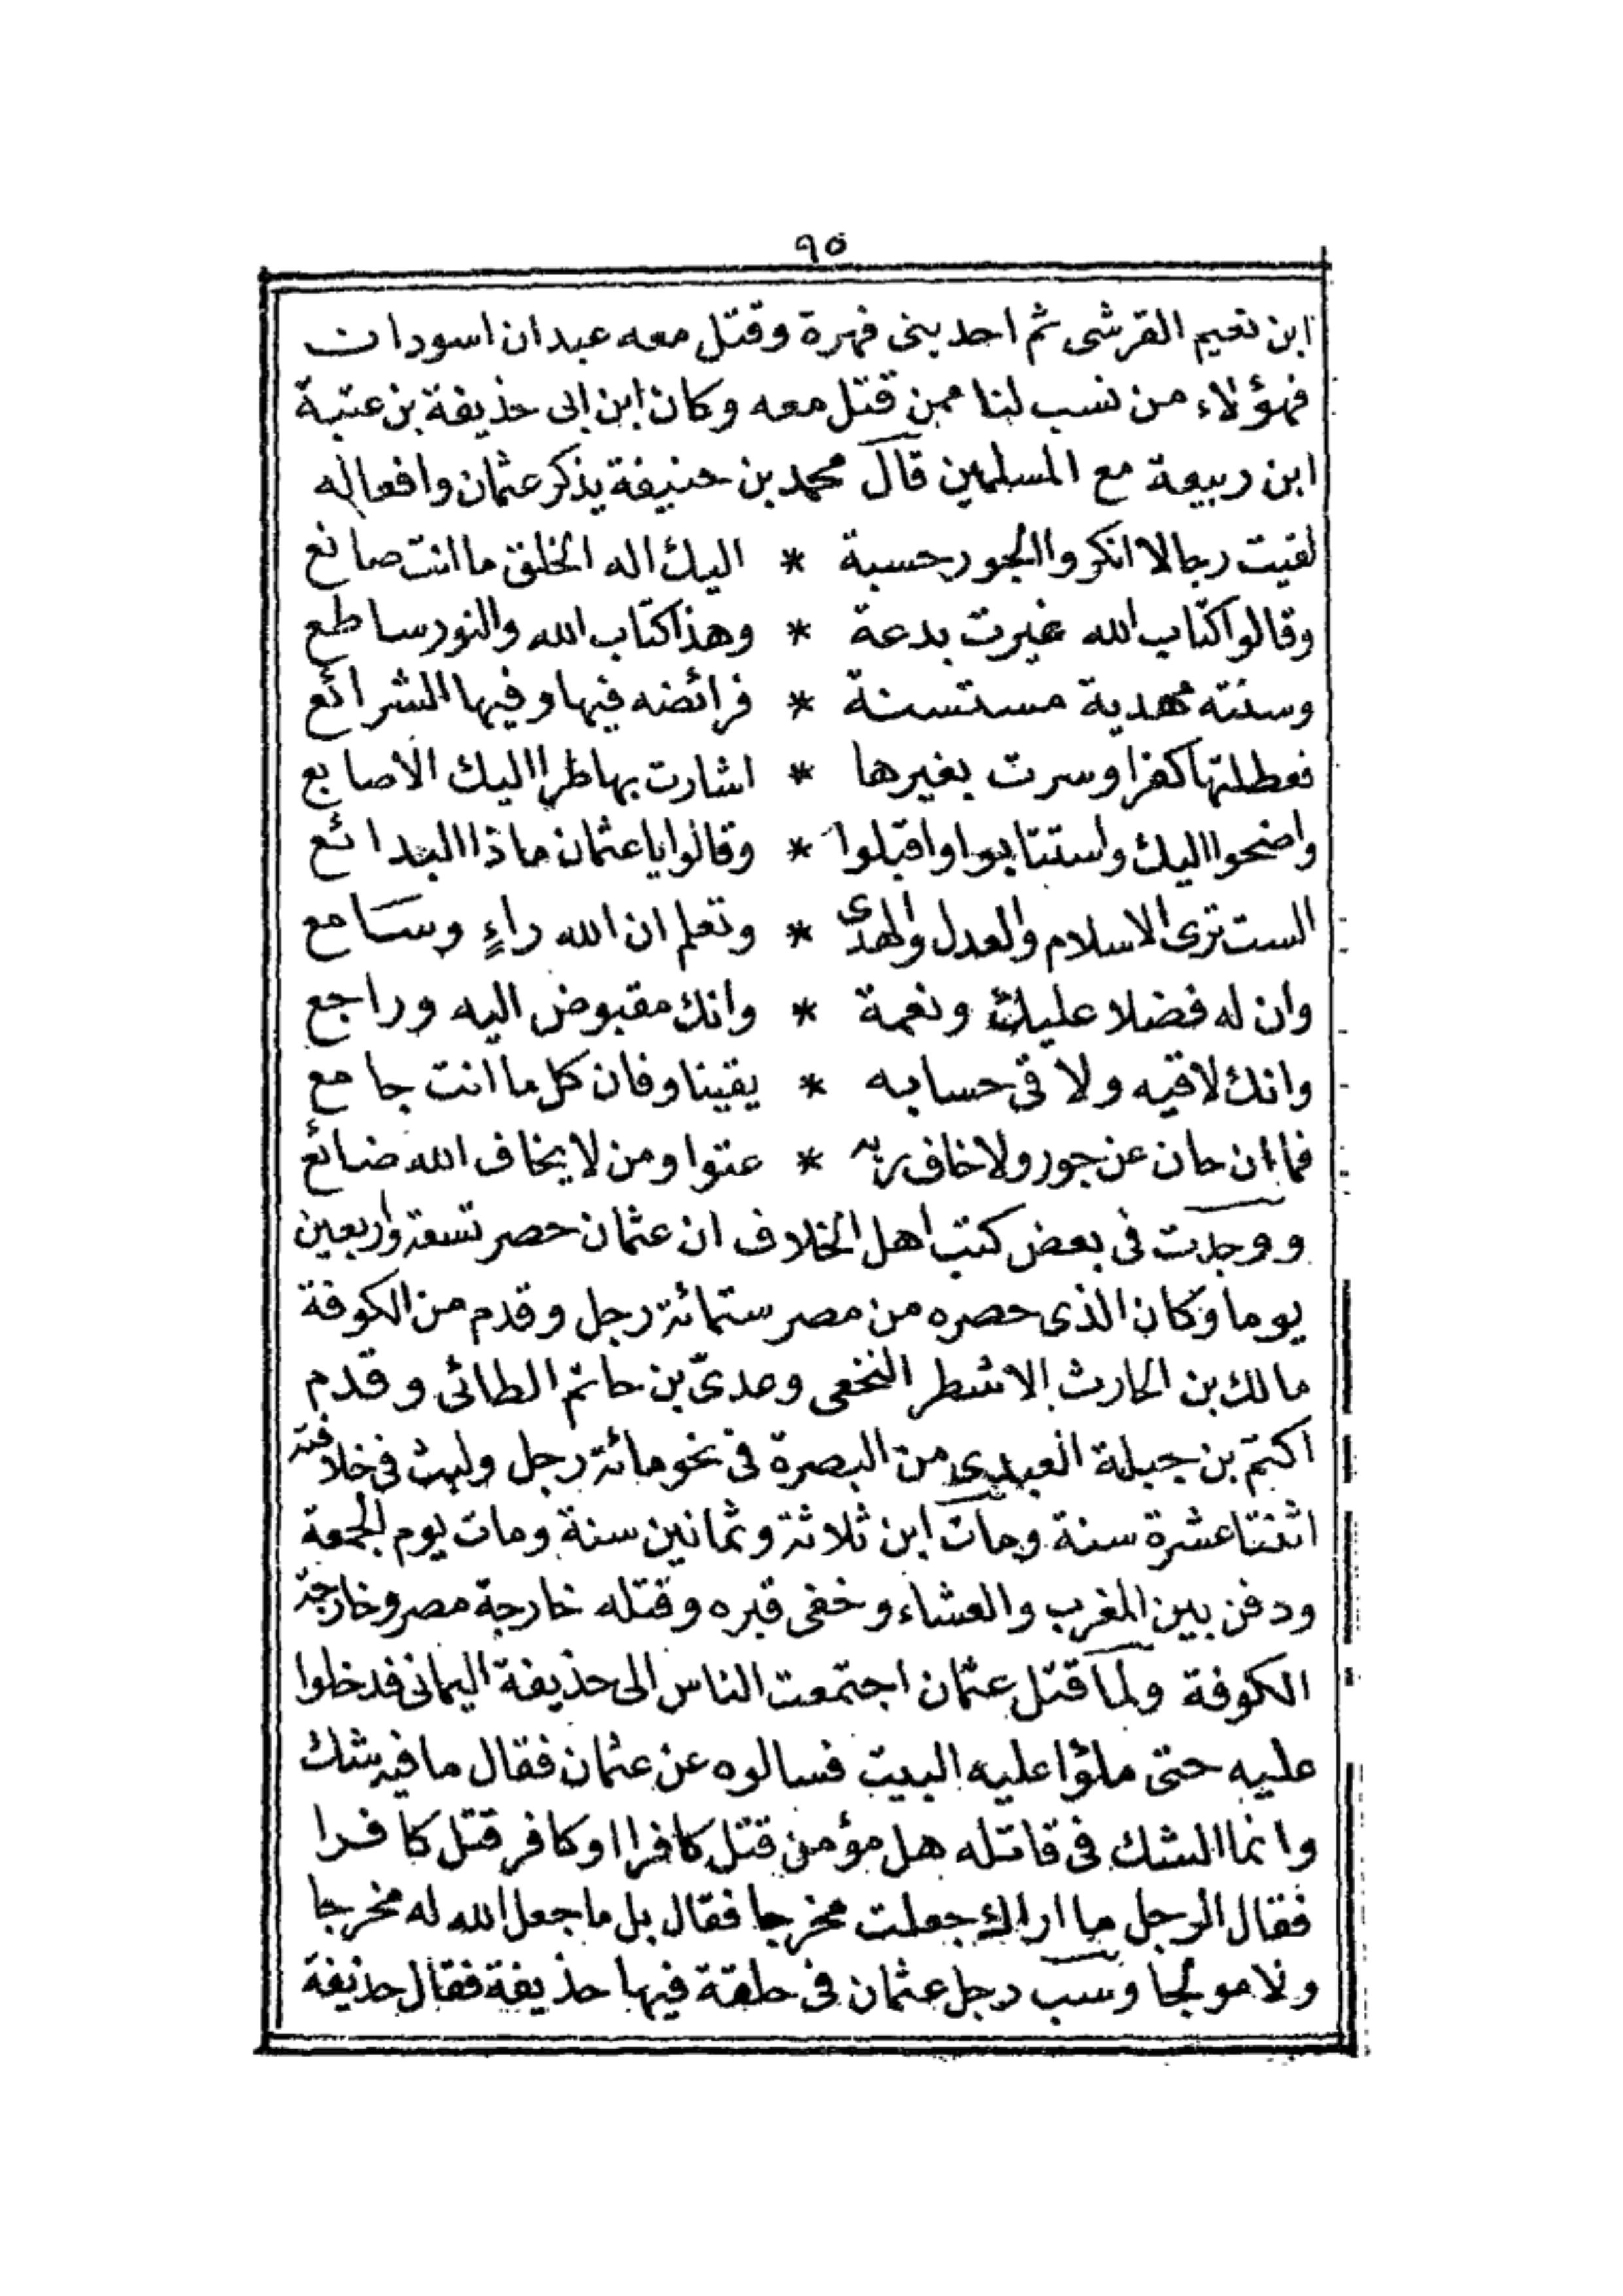 ٩٥
ابن نعيم القرشى ثم احد بنى فهرة وقتل معه عبدان اسودان
فهؤلاء من نسب لنا ممن قتل معه وكان ابن ابى حذيفة بن عتبة
ابن ربيعة مع المسلمين قال محمد بن حنيفة يذكر عثمان وافعاله
لقيت رجالا انكروا الجور حسبة * اليك اله الخلق ما انت صانع
وقالوا كتاب الله غيرت بدعة * وهذا كتاب الله والنور ساطع
وسنته مهدية مستسنة * فرائضه فيها وفيها الشرائع
فعطلتها كفرا وسرت بغيرها * اشارت بها طرا اليك الاصابع
واضحوا اليك واستتابوا واقبلوا * وقالوا يا عثمان ماذا البدائع
الست ترى الاسلام والعدل والهدى * وتعلم ان الله راءٍ وسامع
وان له فضلا عليك ونعمة * وانك مقبوض اليه وراجع
وانك لاقيه ولا قى حسابه * يقينا وفان كل ما انت جامع
فما ان حان عن جور ولا خاف ربه * عتوا ومن لا يخاف الله ضائع
ووجدت فى بعض كتب اهل الخلاف ان عثمان حصر تسعة واربعين
يوما وكان الذى حصره من مصر ستمائة رجل وقدم من الكوفة
مالك بن الحارث الاشطر النخعى وعدىّ بن حاتم الطائى وقدم
اكتم بن جبلة العبدى من البصرة فى نحو مائة رجل ولبث فى خلافته
اثنتا عشرة سنة ومات ابن ثلاثة وثمانين سنة ومات يوم الجمعة
ودفن بين المغرب والعشاء وخفى قبره وقتله خارجة مصر وخارجة
الكوفة ولما قتل عثمان اجتمعت الناس الى حذيفة اليمانى فدخلوا
عليه حتى ملؤا عليه البيت فسالوه عن عثمان فقال ما فيه شك
وانما الشك فى قاتله هل مؤمن قتل كافرا او كافر قتل كافرا
فقال الرجل ما اراك جعلت مخرجا فقال بل ما جعل الله له مخرجا
ولا مولجا وسب رجل عثمان فى حلقة فيها حذيفة فقال حذيفة